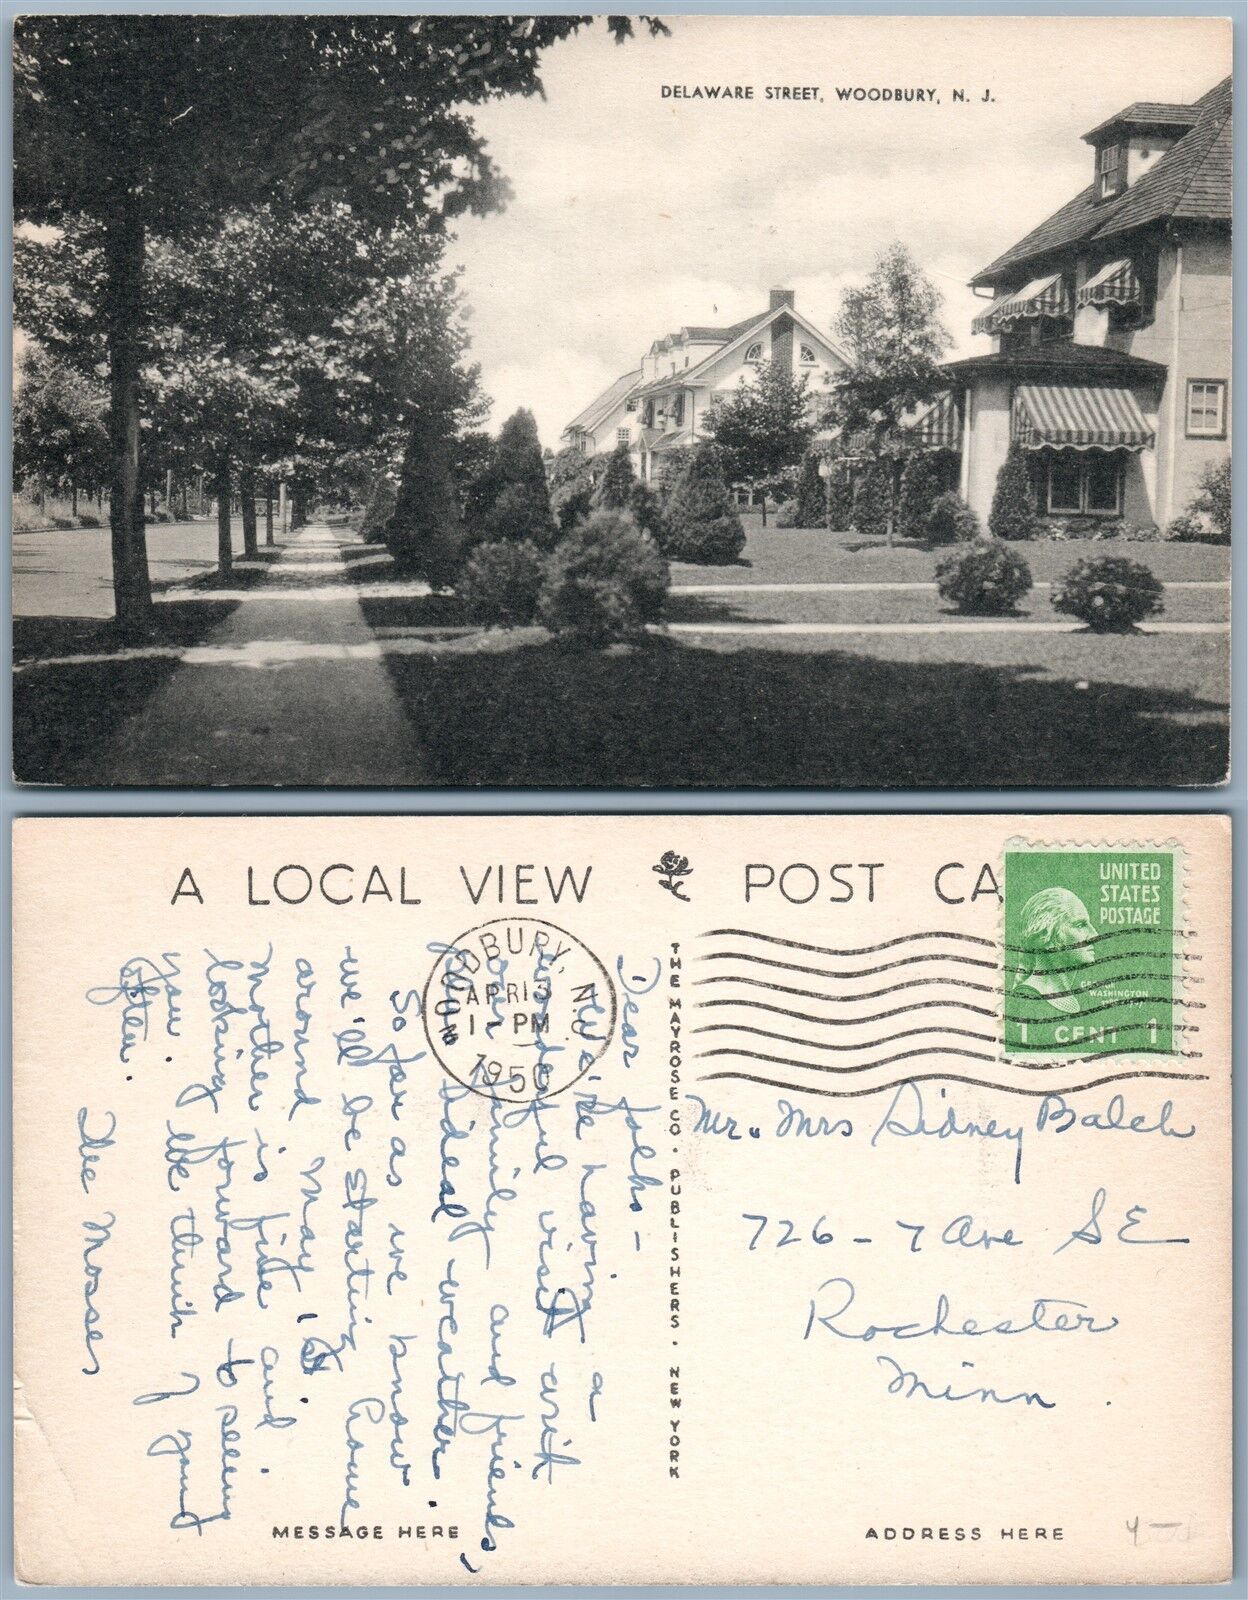 DELAWARE STREET, WOODBURY, N. J.
A LOCAL VIEW
POST CA
UNITED
STATES
POSTAGE
GEORGE
WASHINGTON
1 CENT 1
WOODBURY, N.
APR 13
PM
1950
THE MAYROSE CO. PUBLISHERS. NEW YORK
Dear folks —
We're having a
wonderful visit with
our family and friends,
and ideal weather.
So far as we know
we'll be starting home
around May 1st.
Mother is fine and
looking forward to seeing
you. We think of you
often.
The Mosses
Mr. Mrs Sidney Balch
726 - 7 Ave SE
Rochester
Minn.
MESSAGE HERE
ADDRESS HERE
4 —